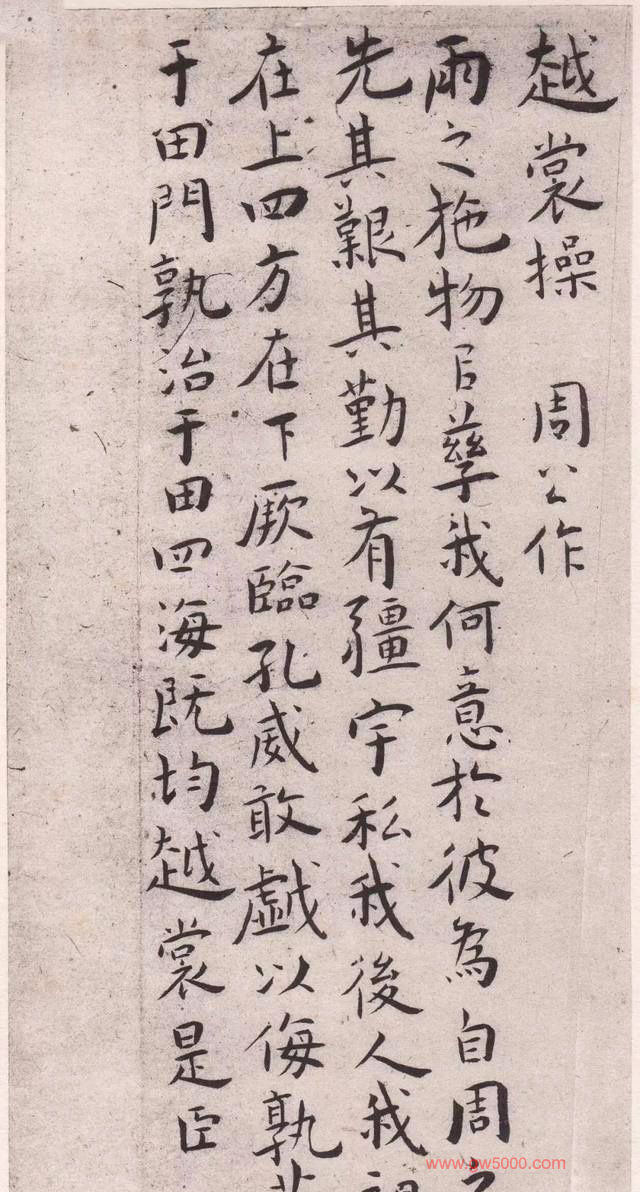 越裳操 周公作
雨之施物㠯孳我何意於彼為自周
先其艱其勤以有疆宇私我後人我
在上四方在下厥臨孔威敢戲以侮孰
于田門孰治于田四海既均越裳是臣
www.yw5000.com